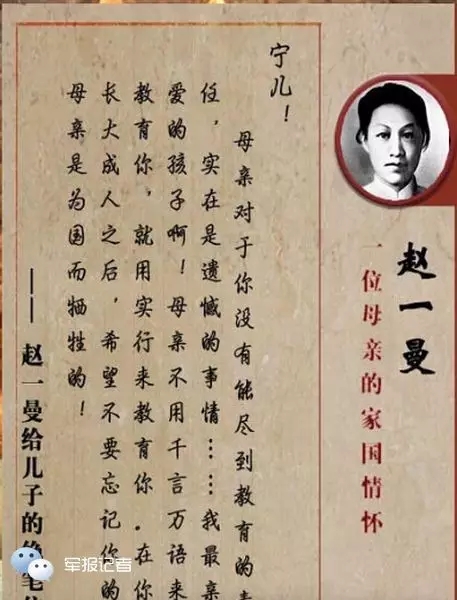 赵一曼
一位母亲的家国情怀
宁儿！
母亲对于你没有能尽到教育的责
任，实在是遗憾的事情……我最亲
爱的孩子啊！母亲不用千言万语来
教育你，就用实行来教育你．在你
长大成人之后，希望不要忘记你的
母亲是为国而牺牲的！
——赵一曼给儿子的绝笔
军报记者